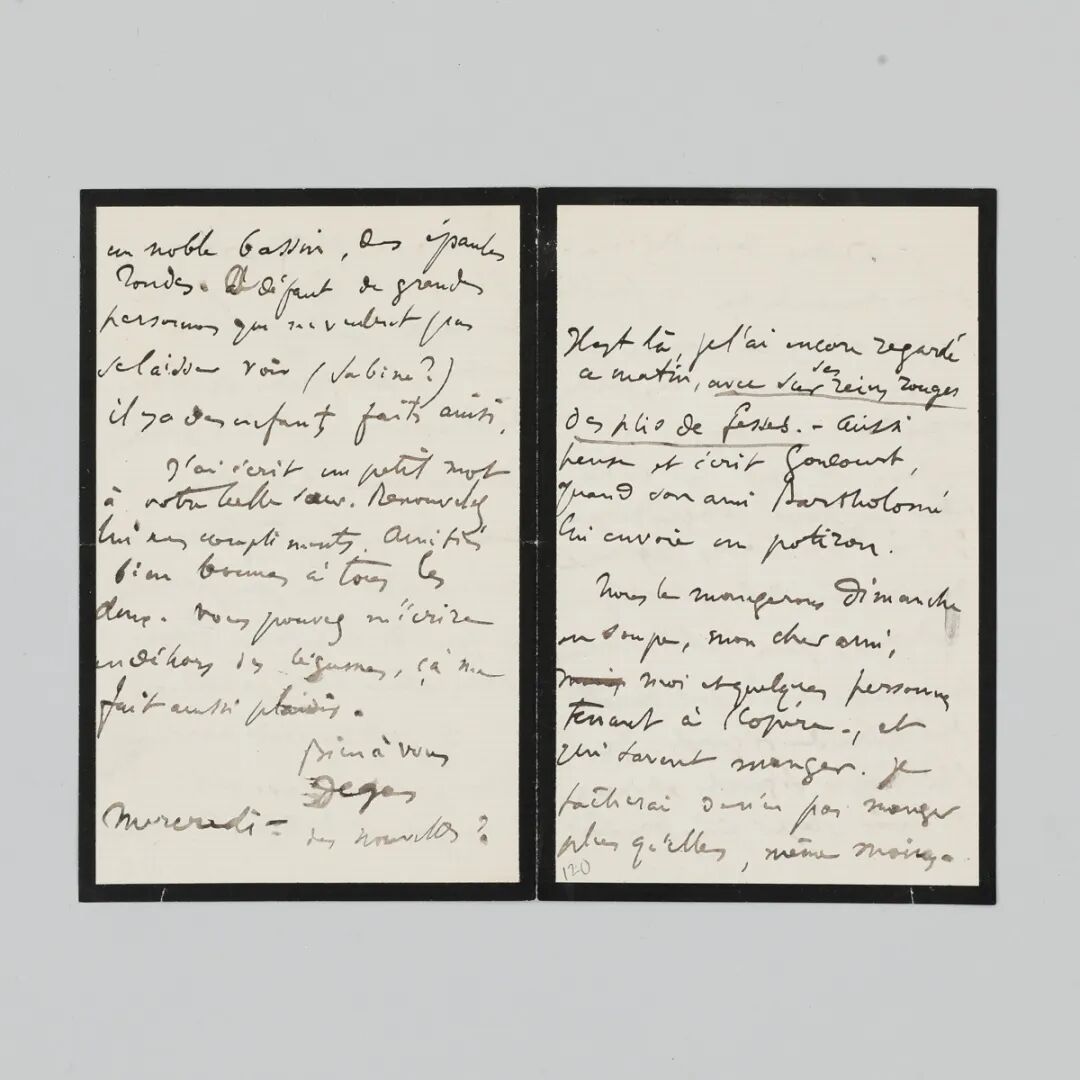 un noble bassin, des épaules
rondes. A défaut de grandes
personnes qui ne veulent pas
se laisser voir (Sabine?)
il y a des enfants faits ainsi,
J'ai écrit un petit mot
à votre belle sœur. Renouvelez
lui mes compliments. Amitiés
bien bonnes à tous les
deux. Vous pouvez m'écrire
en dehors des légumes, çà me
fait aussi plaisir.
Bien à vous
Degas
Mercredi = des nouvelles?
Il est là, je l'ai encore regardé
ce matin, avec ses reins rouges
des plis de fesses. - Aussi
pense et écrit Goncourt,
quand son ami Bartholomé
lui envoie un potiron.
Nous le mangerons Dimanche
en soupe, mon cher ami,
moi et quelques personnes
tenant à l'opéra., et
qui savent manger. Je
tâcherai de n'en pas manger
plus qu'elles, même moins.
120